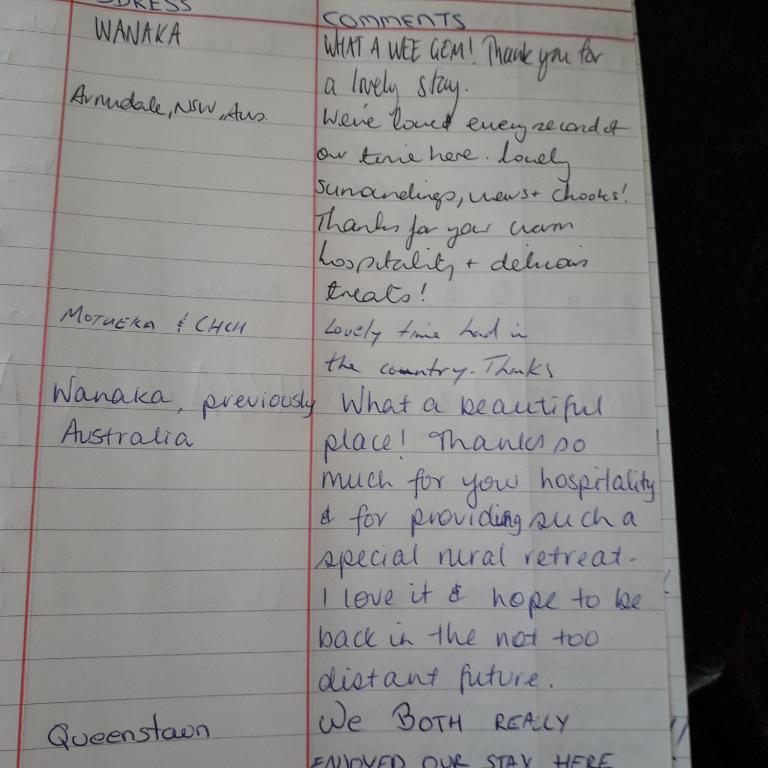 DDRESS COMMENTS
WANAKA WHAT A WEE GEM! Thank you for
a lovely stay.
NSW, Aus. We've loved every second of
our time here. Lovely
surroundings, views + chooks!
Thanks for your warm
hospitality + delicious
treats!
MOTUEKA & CHCH Lovely time had in
the country. Thanks
Wanaka, previously What a beautiful
Australia place! Thanks so
much for your hospitality
& for providing such a
special rural retreat.
I love it & hope to be
back in the not too
distant future.
Queenstown We BOTH REALLY
ENJOYED OUR STAY HERE